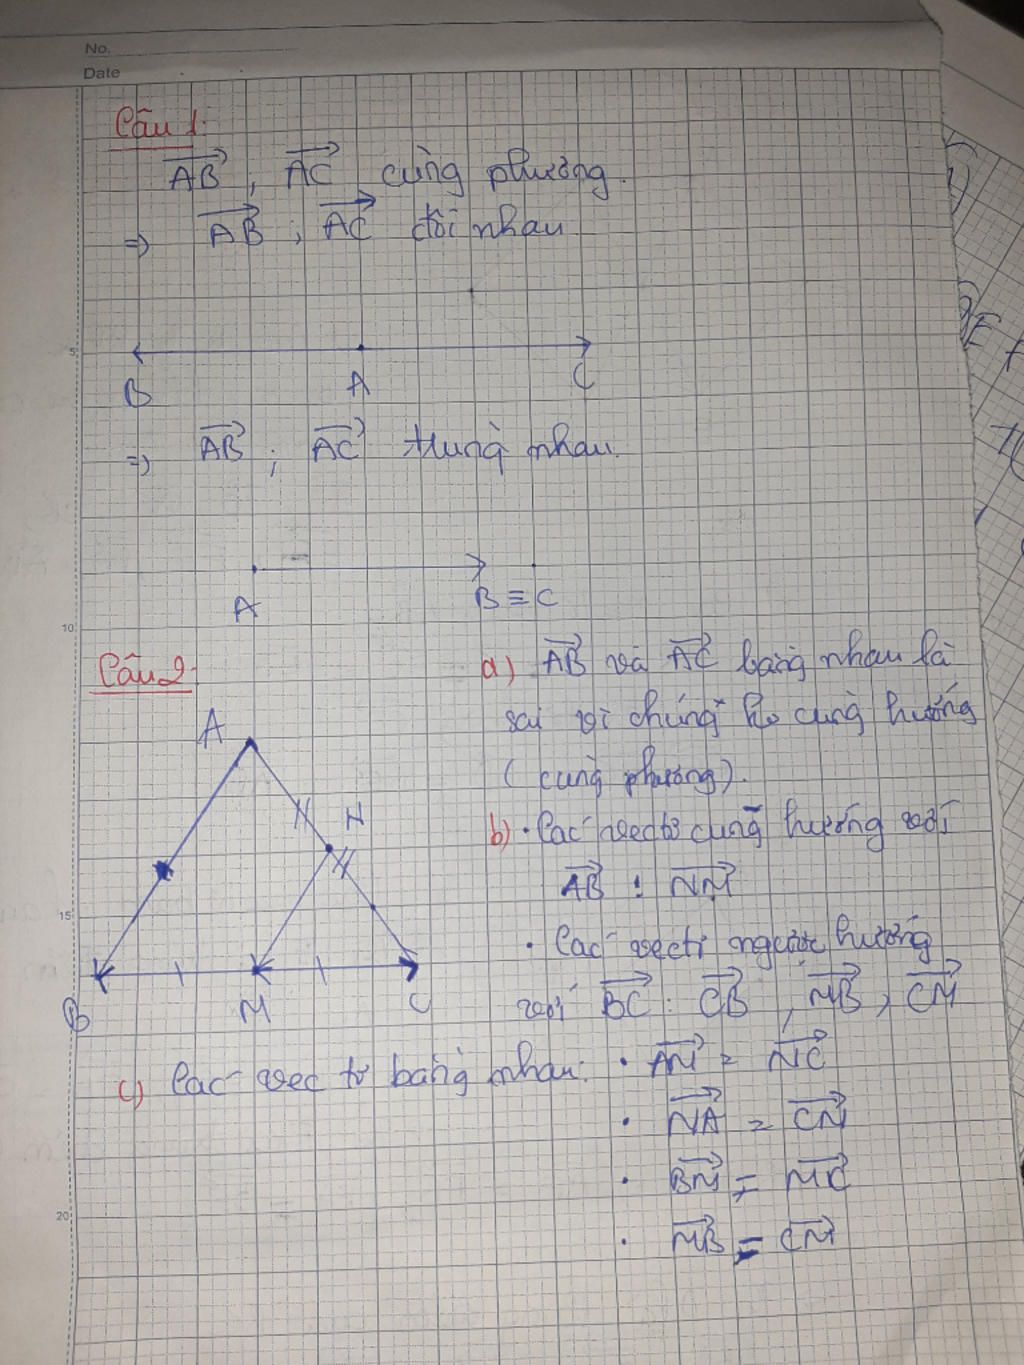 No.
Date
Câu 1:
AB, AC cùng phương.
=> AB ; AC đối nhau
5
B A C
=> AB ; AC trùng nhau.
A B ≡ C
10
Câu 2:
a) AB và AC bằng nhau là
sai vì chúng ko cùng hướng
(cùng phương).
A
N
b) • Các vectơ cùng hướng với
AB : NM
15
• Các vectơ ngược hướng
với BC : CB, MB, CM
B M C
c) Các vec tơ bằng nhau: • AN = NC
• NA = CN
• BM = MC
20
• MB = CM